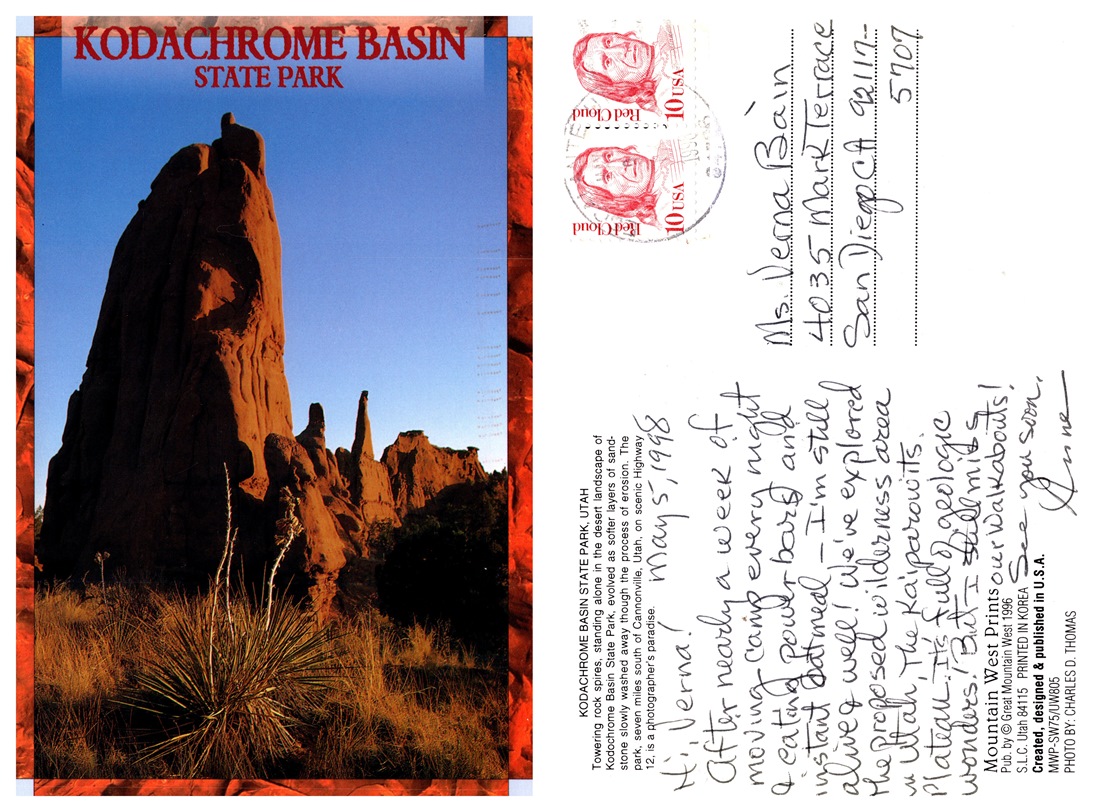 KODACHROME BASIN
STATE PARK
Red Cloud
10 USA
Red Cloud
10 USA
Ms. Verna Bain
4035 Mark Terrace
San Diego CA 92117-
5707
KODACHROME BASIN STATE PARK, UTAH
Towering rock spires, standing alone in the desert landscape of
Kodochrome Basin State Park, evolved as softer layers of sand-
stone slowly washed away though the process of erosion. The
park, seven miles south of Cannonville, Utah, on scenic Highway
12, is a photographer's paradise.
May 5, 1998
Hi, Verna!
After nearly a week of
moving camp every night
& eating power bars and
instant oatmeal — I'm still
alive & well! We've explored
the proposed wilderness area
in Utah, The Kaiparowits
Plateau. It's full of geologic
wonders! But I still miss
our Walkabouts!
See you soon,
Anne
Mountain West Prints
Pub. by © Great Mountain West 1996
S.L.C. Utah 84115 PRINTED IN KOREA
Created, designed & published in U.S.A.
MWP-SW75/UW805
PHOTO BY: CHARLES D. THOMAS